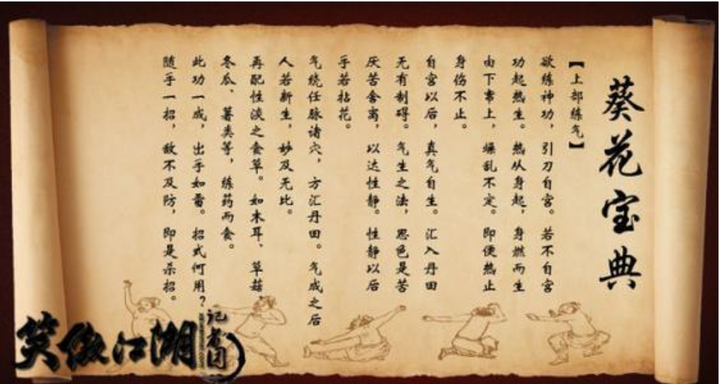 葵花宝典
【上部练气】
欲练神功，引刀自宫。若不自宫
功起热生。热从身起，身燃而生
由下窜上，燥乱不定。即便热止
身伤不止。
自宫以后，真气自生。汇入丹田
无有制碍。气生之法，思色是苦
厌苦舍离，以达性静。性静以后
乎若拈花。
气绕任脉诸穴，方汇丹田。气成之后
人若新生，妙及无比。
再配性淡之食草。如木耳、草菇
冬瓜、薯类等，练药而食。
此功一成，出乎如雷。招式何用？
随乎一招，敌不及防，即是杀招。
笑傲江湖
记者团